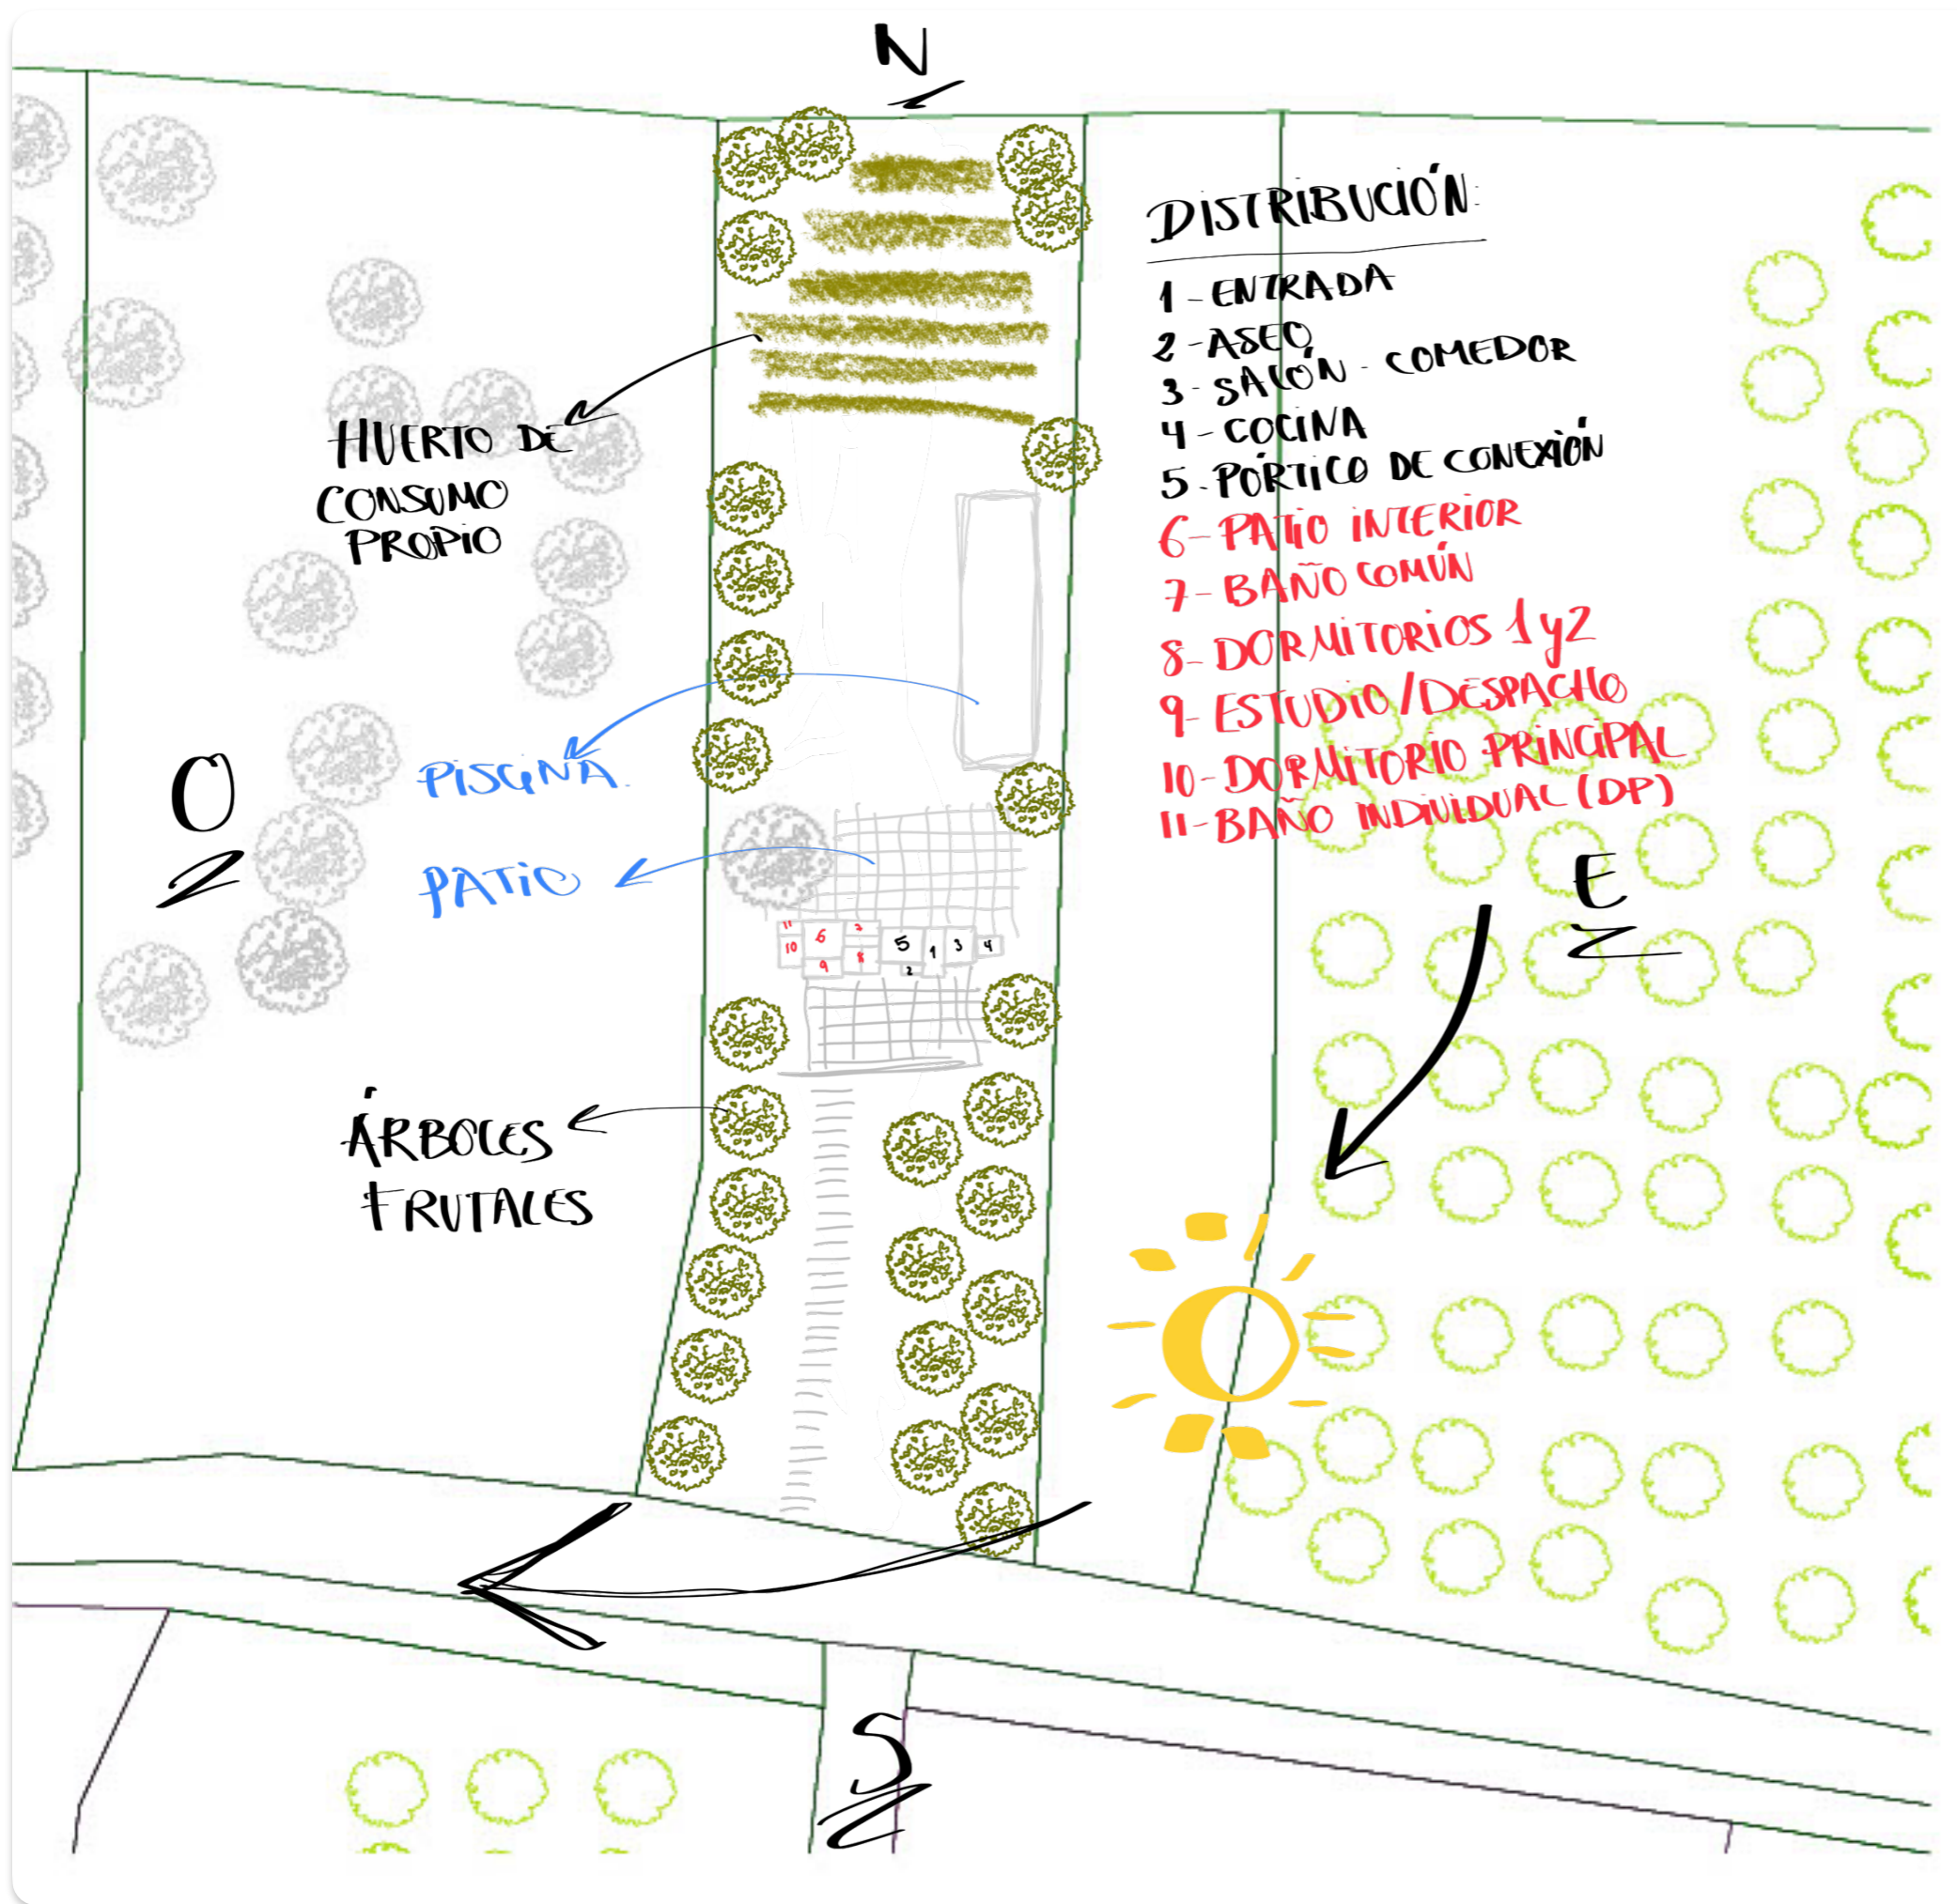 N
DISTRIBUCIÓN:
1 - ENTRADA
2 - ASEO
3 - SALÓN - COMEDOR
4 - COCINA
5 - PÓRTICO DE CONEXIÓN
6 - PATIO INTERIOR
7 - BAÑO COMÚN
8 - DORMITORIOS 1 y 2
9 - ESTUDIO / DESPACHO
10 - DORMITORIO PRINCIPAL
11 - BAÑO INDIVIDUAL (DP)
HUERTO DE
CONSUMO
PROPIO
O
PISCINA.
PATIO
E
11 6 7 5 1 3 4
10 9 8 2
ÁRBOLES
FRUTALES
S